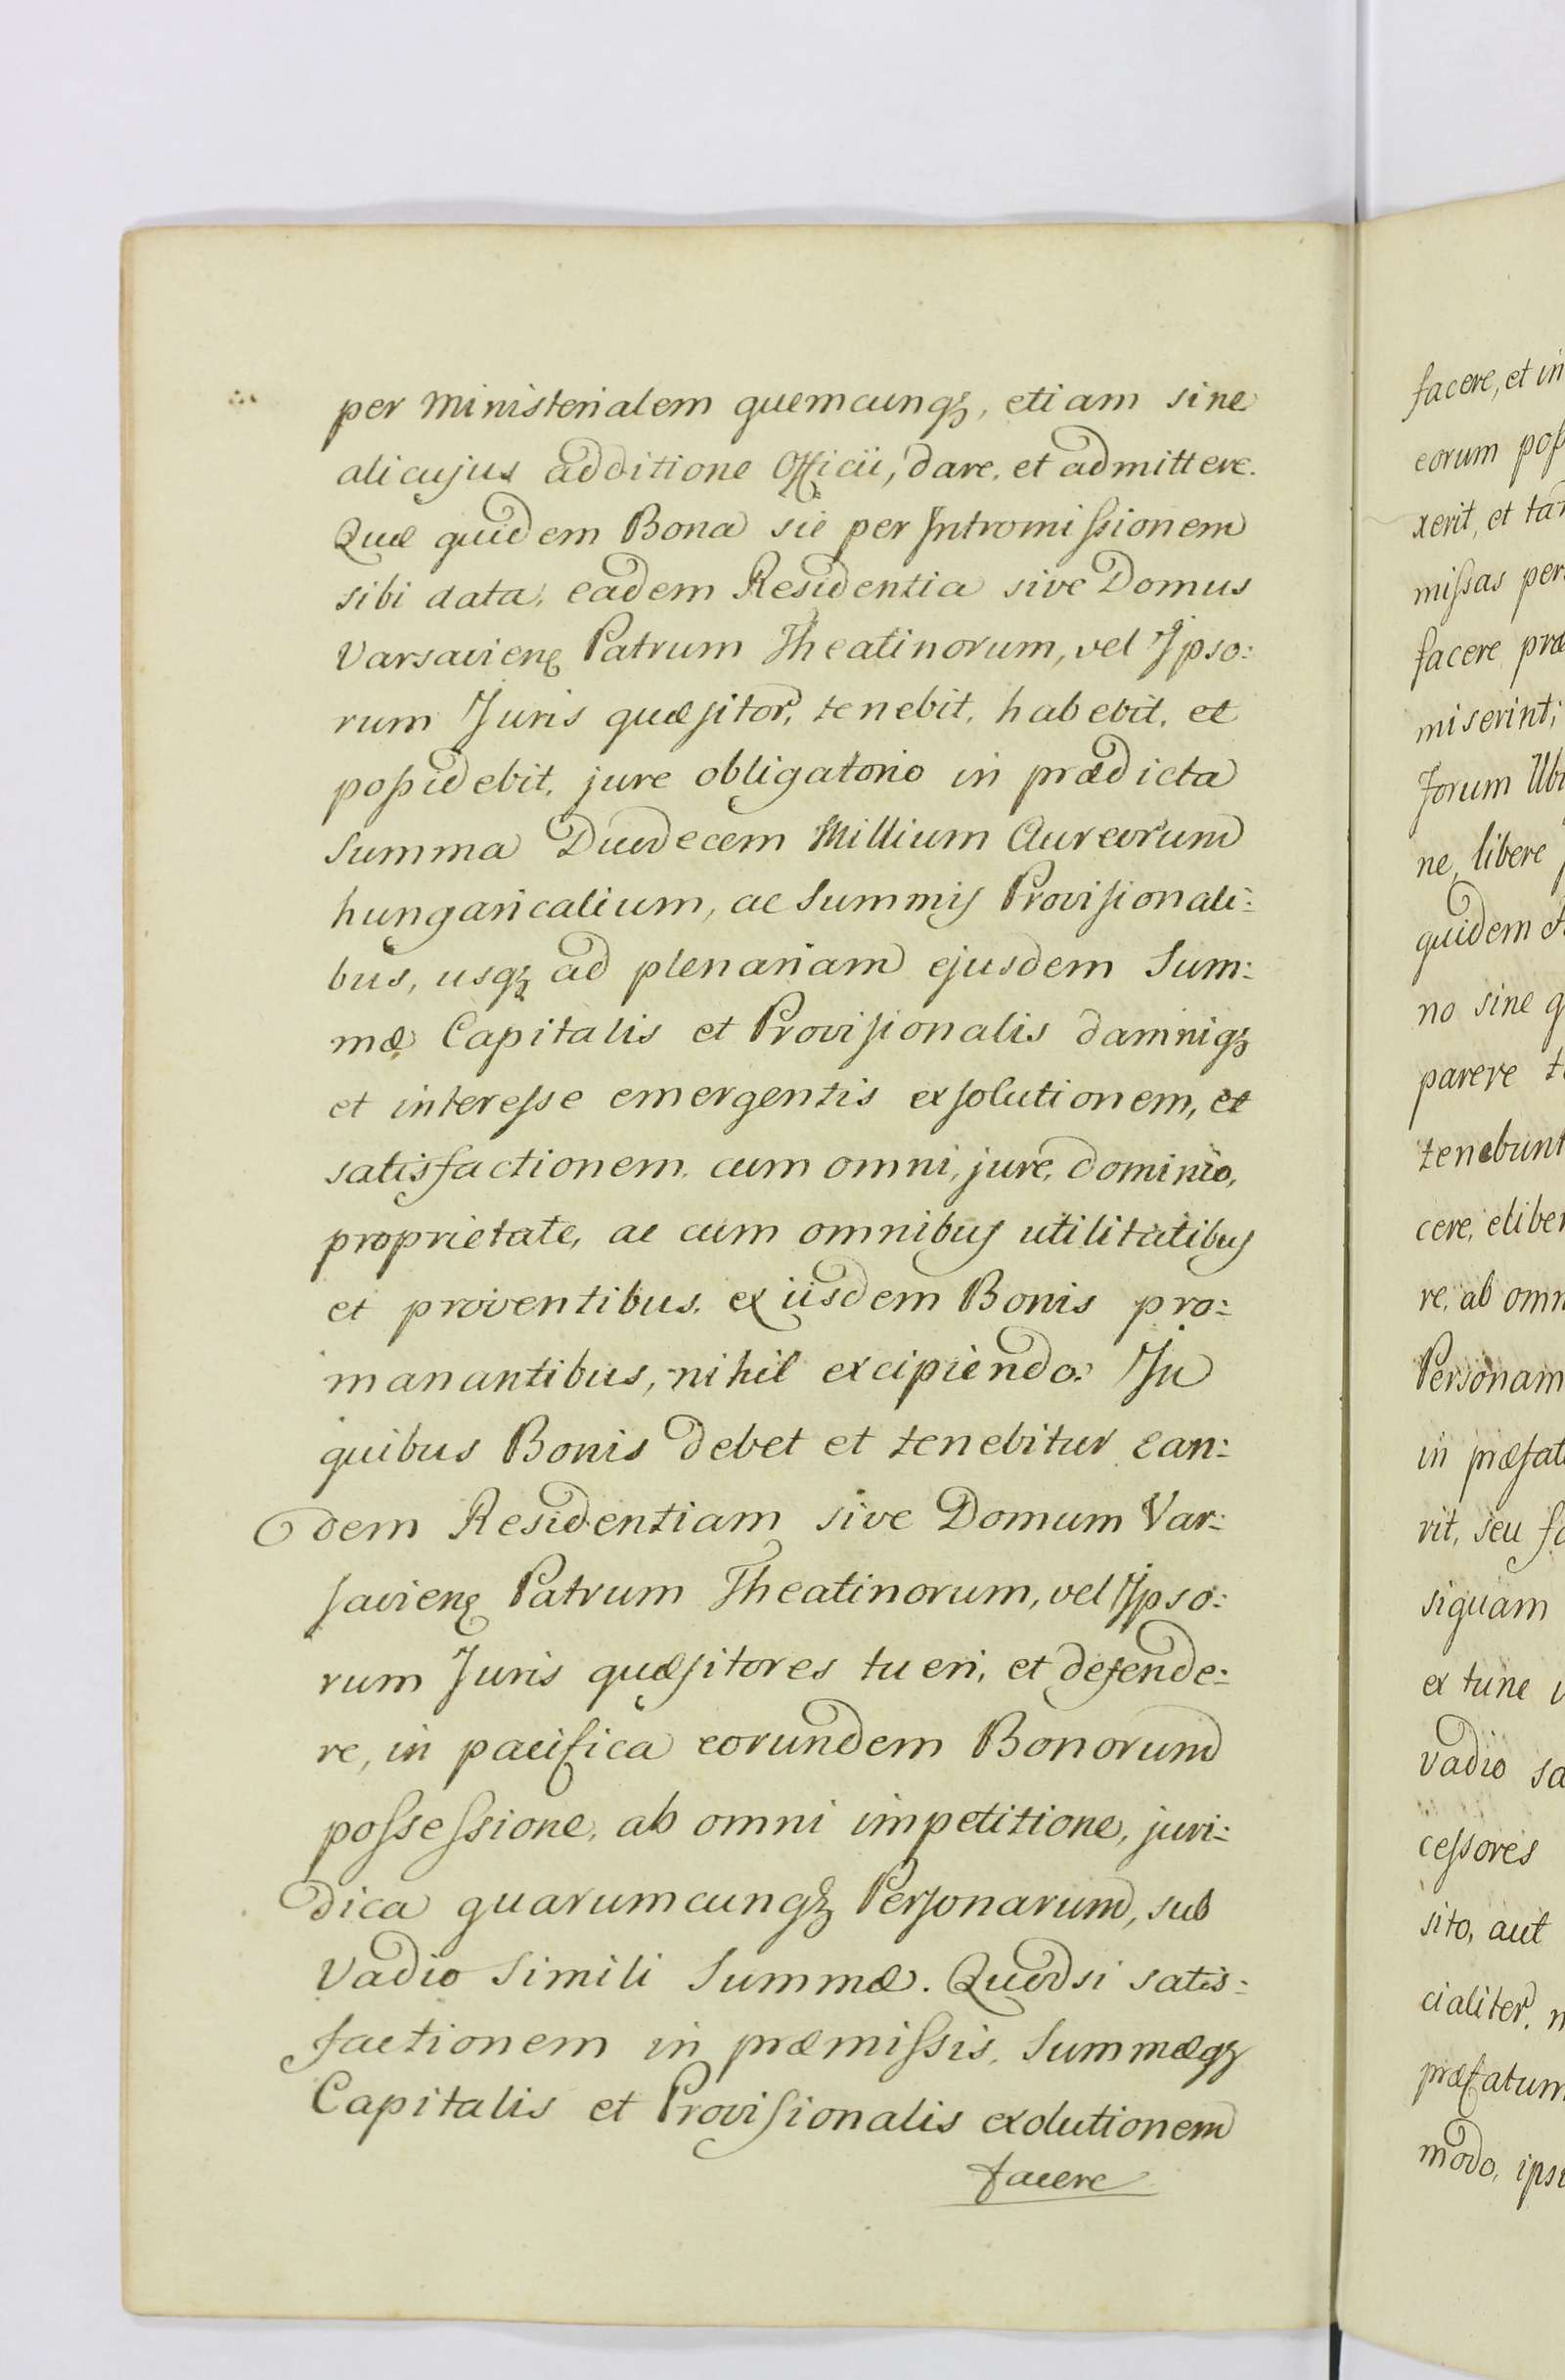 per Ministerialem quemcunqȝ, etiam sine
alicujus additione Officii, dare, et admittere.
Quæ quidem Bona sic per Intromissionem
sibi data, eadem Residentia sive Domus
Varsavienę Patrum Theatinorum, vel Ipso:
rum Juris quæsitor, tenebit, habebit, et
possidebit, jure obligatorio in prædicta
Summa Duodecem Millium Aureorum
hungaricalium, ac Summis Provisionali:
bus, usqȝ ad plenariam ejusdem Sum:
mæ Capitalis et Provisionalis damniqȝ
et interesse emergentis exsolutionem, et
satisfactionem, cum omni, jure, dominio,
proprietate, ac cum omnibus utilitatibus
et proventibus, ex iisdem Bonis pro:
manantibus, nihil excipiendo: In
quibus Bonis debet et tenebitur ean:
dem Residentiam sive Domum Var:
savienę Patrum Theatinorum, vel Ipso:
rum Juris quæsitores tueri, et defende:
re, in pacifica eorundem Bonorum
possessione, ab omni impetitione, juri:
dica quarumcunqȝ Personarum, sub
Vadio simili Summæ. Quodsi satis:
factionem in præmissis, Summæqȝ
Capitalis et Provisionalis exolutionem
facere
facere, et in
eorum poss
xerit, et tan
missas per
facere præ
miserint;
Forum Ubi
ne, libere
quidem
no sine q
parere t
tenebunt
cere, eliber
re, ab omn
Personam
in præfat
rit, seu fa
siquam
ex tunc
Vadio sa
cessores
sito, aut
cialiter, n
præfatum
modo, ips